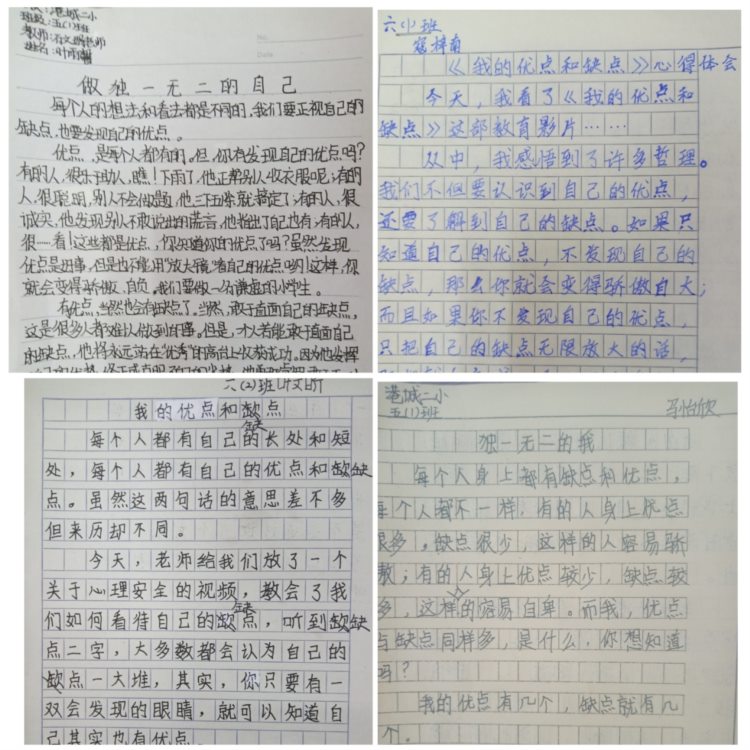 港城二小
班级:五(1)班
No.
Date
做独一无二的自己
每个人的想法和看法都是不同的,我们要正视自己的
缺点,也要发现自己的优点。
优点,是每个人都有的。但,你有发现自己的优点吗?
有的人,很乐于助人,瞧!下雨了,他正帮别人收衣服呢;有的
人,很聪明,别人不会做题,他三下五除就搞定了;有的人,很
诚实,他发现别人不敢说出的谎言,他指出了自己也有;有的人,
很……看!这些都是优点,你知道你的优点了吗?虽然发现
优点是好事,但是也不能用"放大镜"看自己的优点哟!这样,你
就会变得骄傲、自负,我们要做一名谦虚的小学生。
有优点,当然也会有缺点了。当然,敢于直面自己的缺点,
这是很多人都难以做到的事。但是,才人若能敢于直面自己
的缺点,他将永远站在"优秀"的高台上收获成功。因为他发挥
六(1)班
《我的优点和缺点》心得体会
今天,我看了《我的优点和
缺点》这部教育影片……
从中,我感悟到了许多哲理。
我们不但要认识到自己的优点,
还要了解到自己的缺点。如果只
知道自己的优点,不发现自己的
缺点,那么你就会变得骄傲自大;
而且如果你不发现自己的优点,
只把自己的缺点无限放大的话,
六(2)班
我的优点和缺点
每个人都有自己的长处和短
处,每个人都有自己的优点和缺
点。虽然这两句话的意思差不多
但来历却不同。
今天,老师给我们放了一个
关于心理安全的视频,教会了我
们如何看待自己的缺点,听到缺
点二字,大多数都会认为自己的
缺点一大堆,其实,你只要有一
双会发现的眼睛,就可以知道自
己其实也有优点。
港城二小
五(1)班
马怡欣
独一无二的我
每个人身上都有缺点和优点,
每个人都不一样,有的人身上优点
很多,缺点很少,这样的人容易骄
傲;有的人身上优点较少,缺点较
多,这样的容易自卑。而我,优点
与缺点同样多,是什么,你想知道
吗?
我的优点有几个,缺点就有几
个。